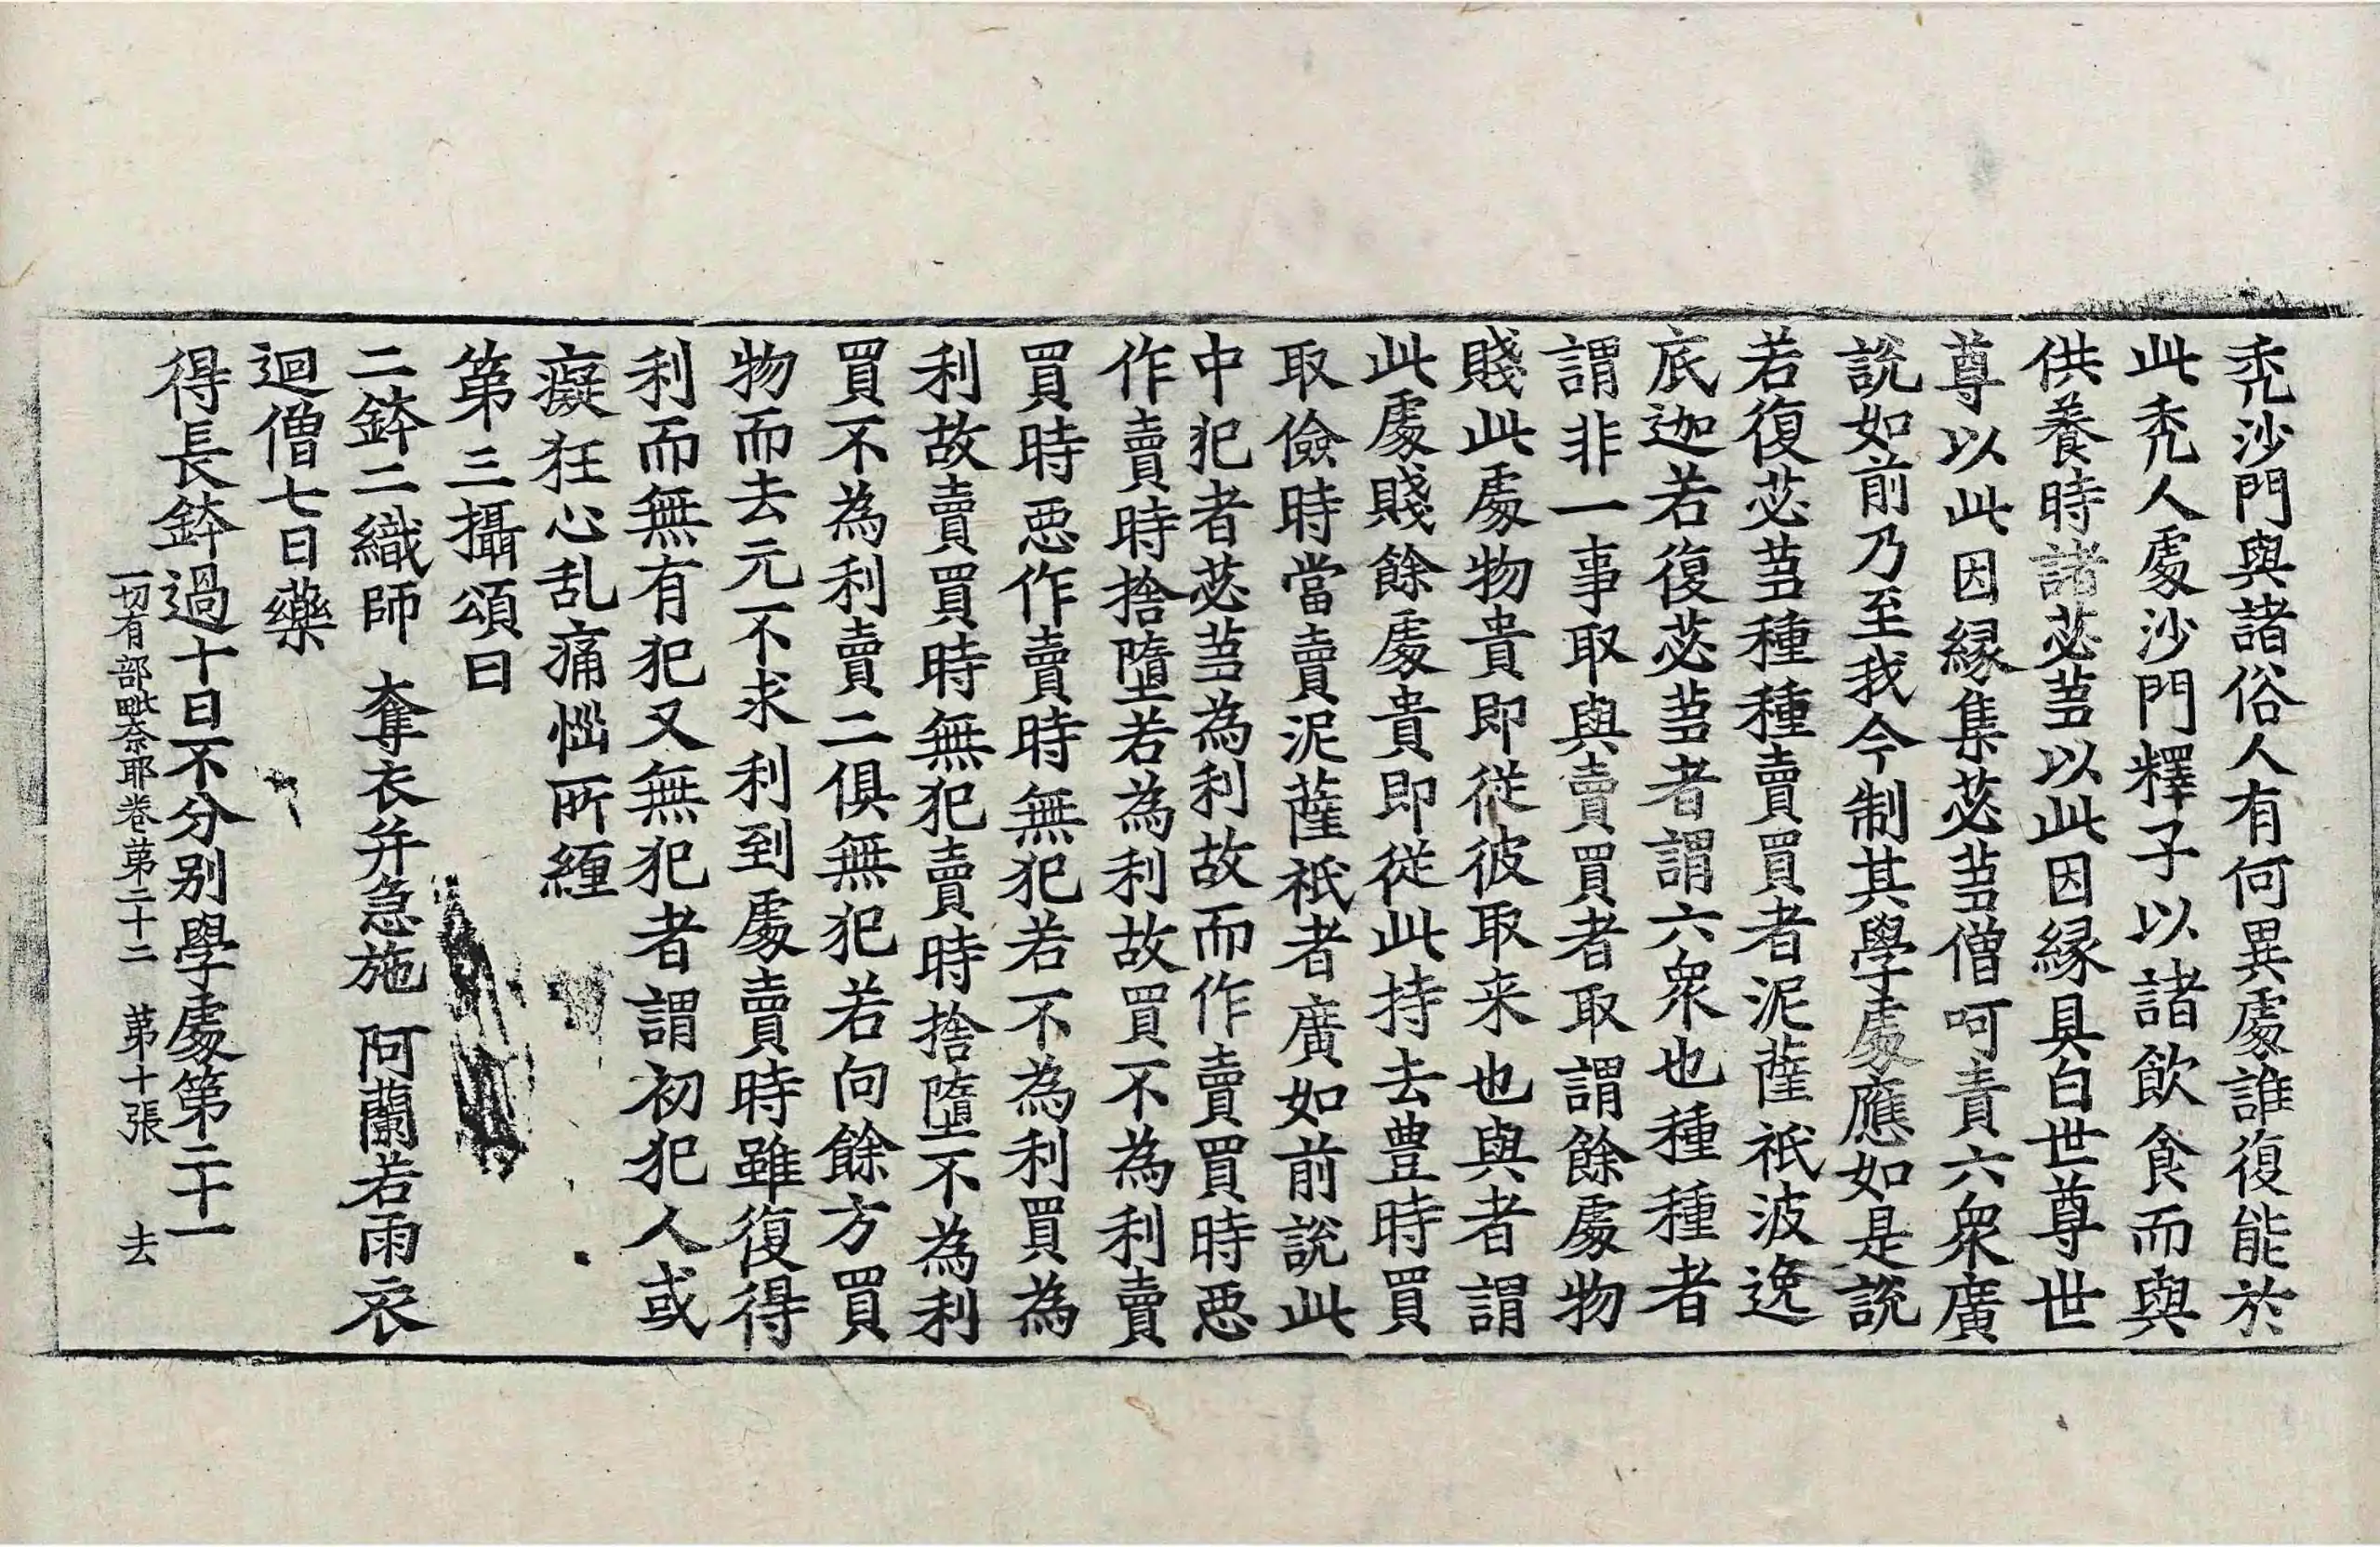 禿沙門與諸俗人有何異處誰復能於
此禿人處沙門釋子以諸飲食而與
供養時諸苾蒭以此因縁具白世尊世
尊以此因縁集苾蒭僧呵責六衆廣
說如前乃至我今制其學處應如是說
若復苾蒭種種賣買者泥薩祇波逸
底迦若復苾蒭者謂六衆也種種者
謂非一事取與賣買者取謂餘處物
賤此處物貴即從彼取来也與者謂
此處賤餘處貴即從此持去豊時買
取儉時當賣泥薩祇者廣如前說此
中犯者苾蒭為利故而作賣買時惡
作賣時捨墮若為利故買不為利賣
買時惡作賣時無犯若不為利買為
利故賣買時無犯賣時捨墮不為利
買不為利賣二俱無犯若向餘方買
物而去元不求利到處賣時雖復得
利而無有犯又無犯者謂初犯人或
癡狂心乱痛惱所纒
第三攝頌曰
二鉢二織師　奪衣并急施　阿蘭若雨衣
迴僧七日藥
得長鉢過十日不分別學處第二十一
一切有部毗奈耶卷第二十二　第十張　去